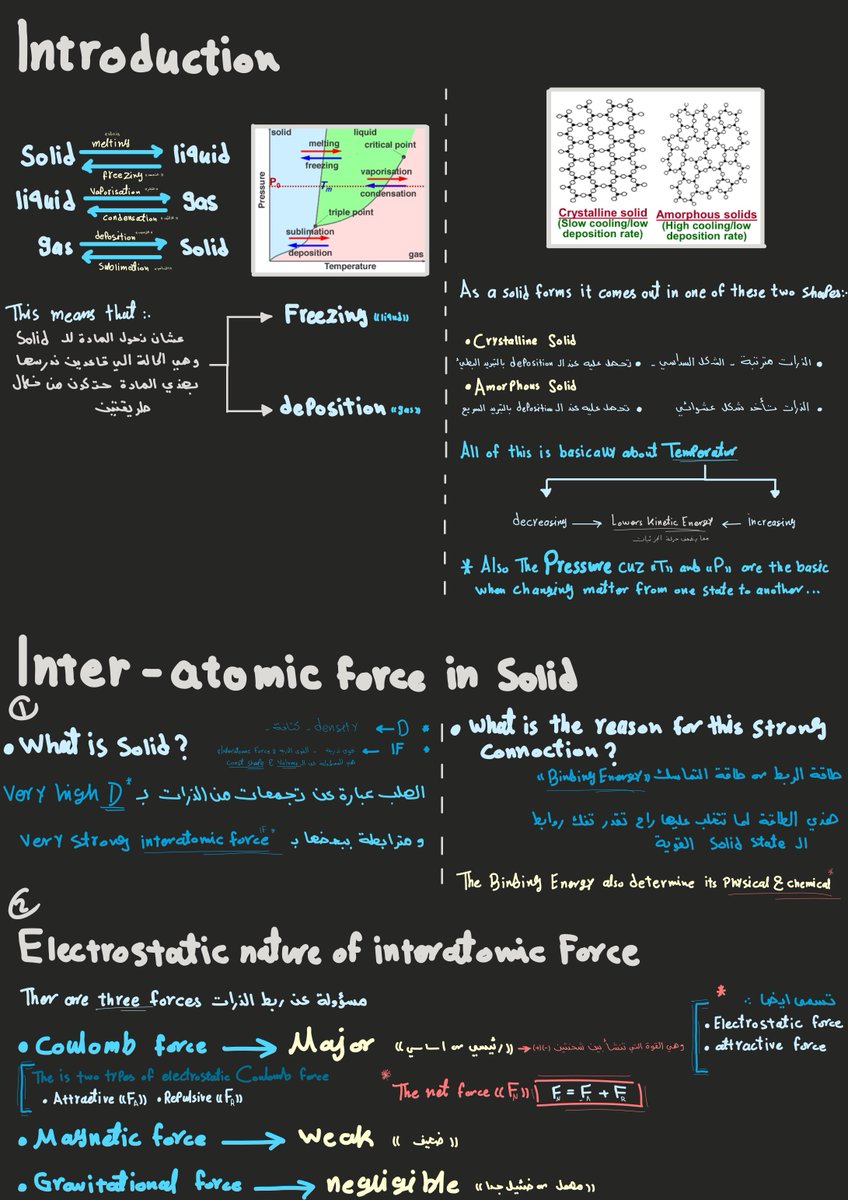 Introduction
Solid melting liquid
freezing
liquid vaporisation gas
condensation
gas deposition Solid
Sublimation
solid
liquid
melting
critical point
freezing
vaporisation
P₀
Tm
condensation
triple point
sublimation
deposition
gas
Pressure
Temperature
This means that :.
عشان نحول المادة للـ Solid
وهي الحالة الي قاعدين ندرسها
بهذي المادة حتكون من خلال
طريقتين
Freezing «liquid»
deposition «gas»
Crystalline solid
(Slow cooling/low
deposition rate)
Amorphous solids
(High cooling/low
deposition rate)
As a solid forms it comes out in one of these two shapes:.
• Crystalline Solid
• الذرات مترتبة - الشكل السداسي - • تحصل عليه عند الـ deposition بالتبريد البطيء
• Amorphous Solid
• الذرات تأخذ شكل عشوائي • تحصل عليه عند الـ deposition بالتبريد السريع
All of this is basically about Temperatur
decreasing Lowers Kinetic Energy increasing
* Also The Pressure cuz «T» and «P» are the basic
when changing matter from one state to another...
Inter-atomic force in Solid
1
• What is Solid?
* D ← density - كثافة -
* IF ←
Const shape & Volume
الصلب عبارة عن تجمعات من الذرات بـ Very high D*
و مترابطة ببعضها بـ Very strong interatomic force "IF"
• What is the reason for this strong
connection?
طاقة الربط or طاقة التماسك «Binding Energy»
هذي الطاقة لما تتغلب عليها راح تقدر تفك روابط
الـ Solid State القوية
The Binding Energy also determine its Physical & chemical*
2
Electrostatic nature of interatomic Force
Ther are three forces مسؤولة عن ربط الذرات
• Coulomb force → Major «رئيسي or اساسي» → وهي القوة التي تنشأ بين شحنتين (-)(+)
* تسمى ايضا :.
• Electrostatic force
• attractive force
The is two types of electrostatic Coulomb force
• Attractive «FA» • Repulsive «FR»
* The net force «FN» FN = FA + FR
• Magnetic force → weak «ضعيف»
• Gravitational force → negligible «مهمل or ضئيل جدا»